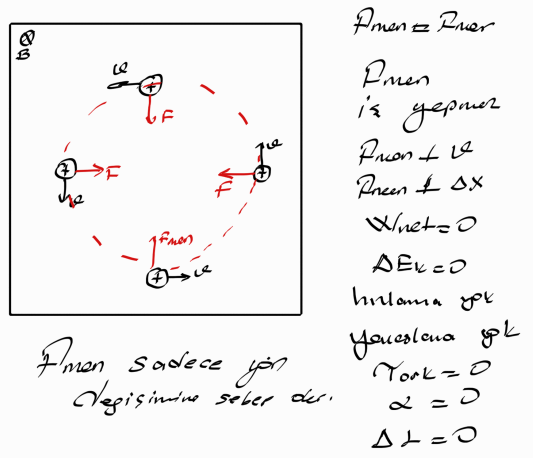 ⊗
B
v
F
F
v
F
v
Fmen
v
Fmen = Fmer
Fmen
iş yapmaz
Fmen ⊥ v
Fmen ⊥ ΔX
Wnet = 0
ΔEk = 0
hızlanma yok
yavaşlama yok
Tork = 0
α = 0
ΔL = 0
Fmen sadece yön
değişimine sebep olur.